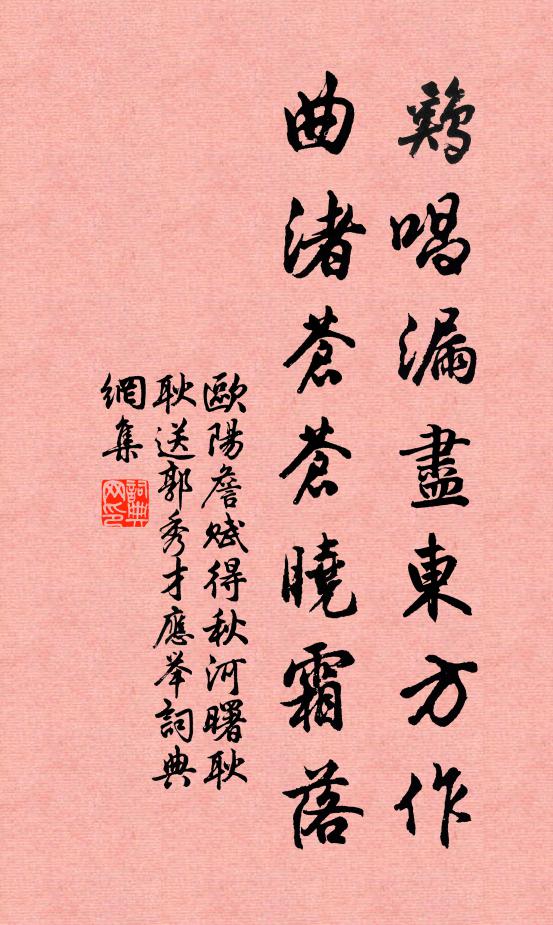 鷄唱漏盡東方作
曲渚蒼蒼曉霜落
歐陽詹賦得秋河曙耿
耿送郭秀才應举詞典
網集
詞典網印